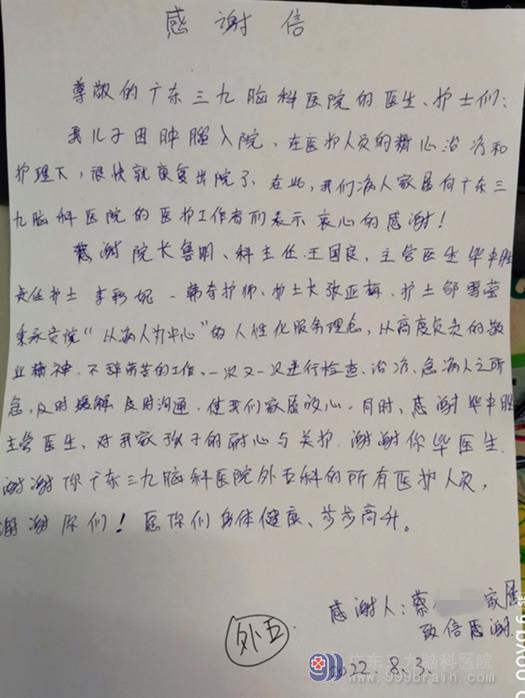 感谢信
尊敬的广东三九脑科医院的医生、护士们:
我儿子因肿瘤入院,在医护人员的精心治疗和
护理下,很快就康复出院了,在此,我们病人家属向广东三
九脑科医院的医护工作者们表示衷心的感谢!
感谢院长鲁明、科主任王国良,主管医生毕中胜
责任护士李彩妮、韩春护师,护士长张亚梅、护士邹雪莹
秉承贵院“以病人为中心”的人性化服务理念,以高度负责的敬
业精神,不辞劳苦的工作,一次又一次进行检查、治疗,急病人之所
急,及时缓解及时沟通,使我们家属放心。同时,感谢毕中胜
主管医生,对我家孩子的耐心与关护,谢谢你毕医生.
谢谢你广东三九脑科医院外五科的所有医护人员,
谢谢你们!愿你们身体健康、步步高升。
感谢人:蔡 家属
致信感谢
外五
2022.8.3.
广东三九脑科医院
www.999brain.com